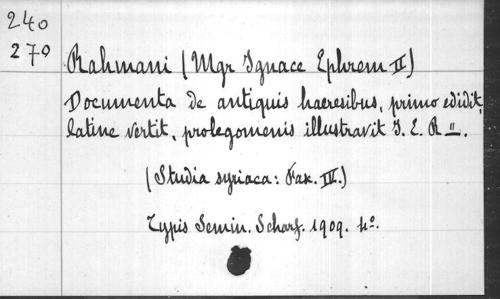 240
270
Rahmani (Mgr Ignace Ephrem II)
Documenta de antiquis haeresibus, primo edidit,
latine vertit, prolegomenis illustravit I. E. R II.
(Studia syriaca: Fax. IV.)
Typis Semin. Scharf. 1909. 4o.